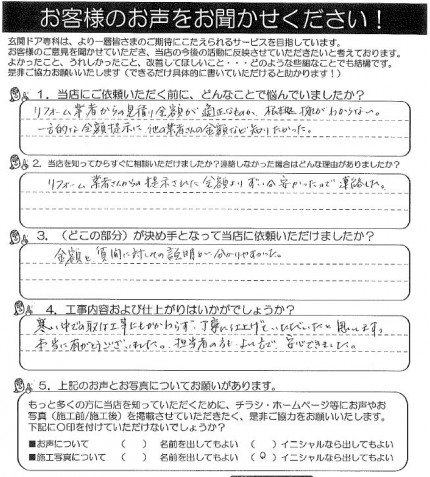 お客様のお声をお聞かせください!
玄関ドア専科は、より一層皆さまのご期待にこたえられるサービスを目指しています。
お客様のご意見を聞かせていただき、当店の今後の活動に反映させていただきたいと考えております。
よかったこと、うれしかったこと、改善してほしいこと・・・どのような些細なことでも結構です。
是非ご協力お願いいたします(できるだけ具体的に書いていただけると助かります!)
1. 当店にご依頼いただく前に、どんなことで悩んでいましたか?
リフォーム業者からの見積り金額が適正なものか、相場がわからない。
一方的な金額提示に他の業者さんの金額など知りたかった。
2. 当店を知ってからすぐに相談いただけましたか?連絡しなかった場合はどんな理由がありましたか?
リフォーム業者さんからの提示された金額よりずい分安かったので連絡した。
3. (どこの部分)が決め手となって当店に依頼いただけましたか?
金額と質問に対しての説明が分かりやすかった。
4. 工事内容および仕上がりはいかがでしょうか?
寒い中での取付工事にもかかわらず、丁寧に仕上げていただいたと思います。
本当に有がとうございました。担当者の方も よい方で 安心できました。
5. 上記のお声とお写真についてお願いがあります。
もっと多くの方に当店を知っていただくために、チラシ・ホームページ等にお声やお
写真(施工前/施工後)を掲載させていただきたく、是非ご協力をお願いいたします。
下記に〇印を付けていただけないでしょうか?
■お声について ( ) 名前を出してもよい ( ) イニシャルなら出してもよい
■施工写真について ( ) 名前を出してもよい (○) イニシャルなら出してもよい